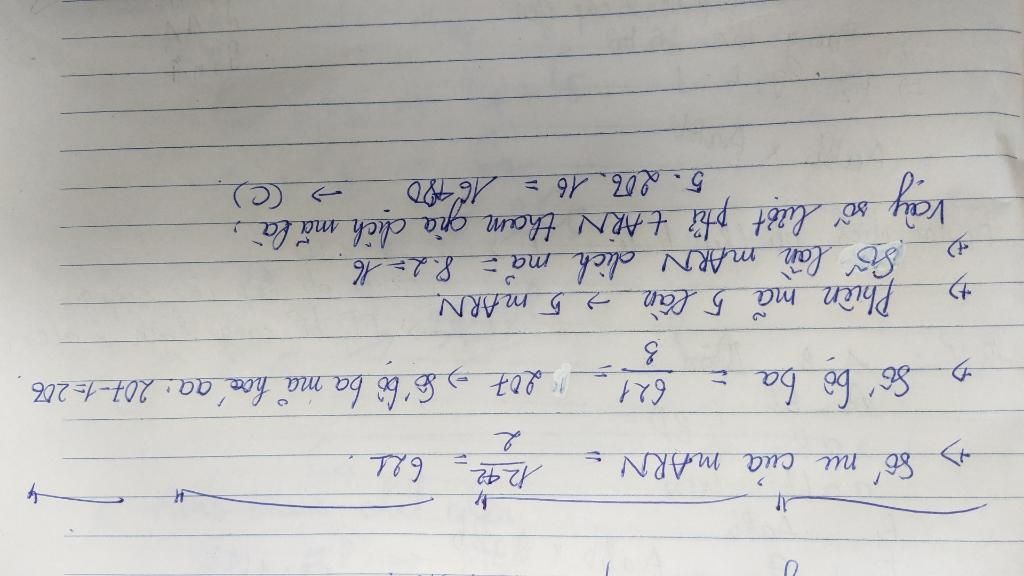 => Số nu của mARN = 1242/2 = 621.
=> Số bộ ba = 621/3 = 207 => Số bộ ba mã hoá aa: 207-1=206
=> Phiên mã 5 lần → 5 mARN
=> Số lần mARN dịch mã = 8.2=16
Vậy số lượt ptử tARN tham gia dịch mã là:
5.206.16 = 16480 → (C)